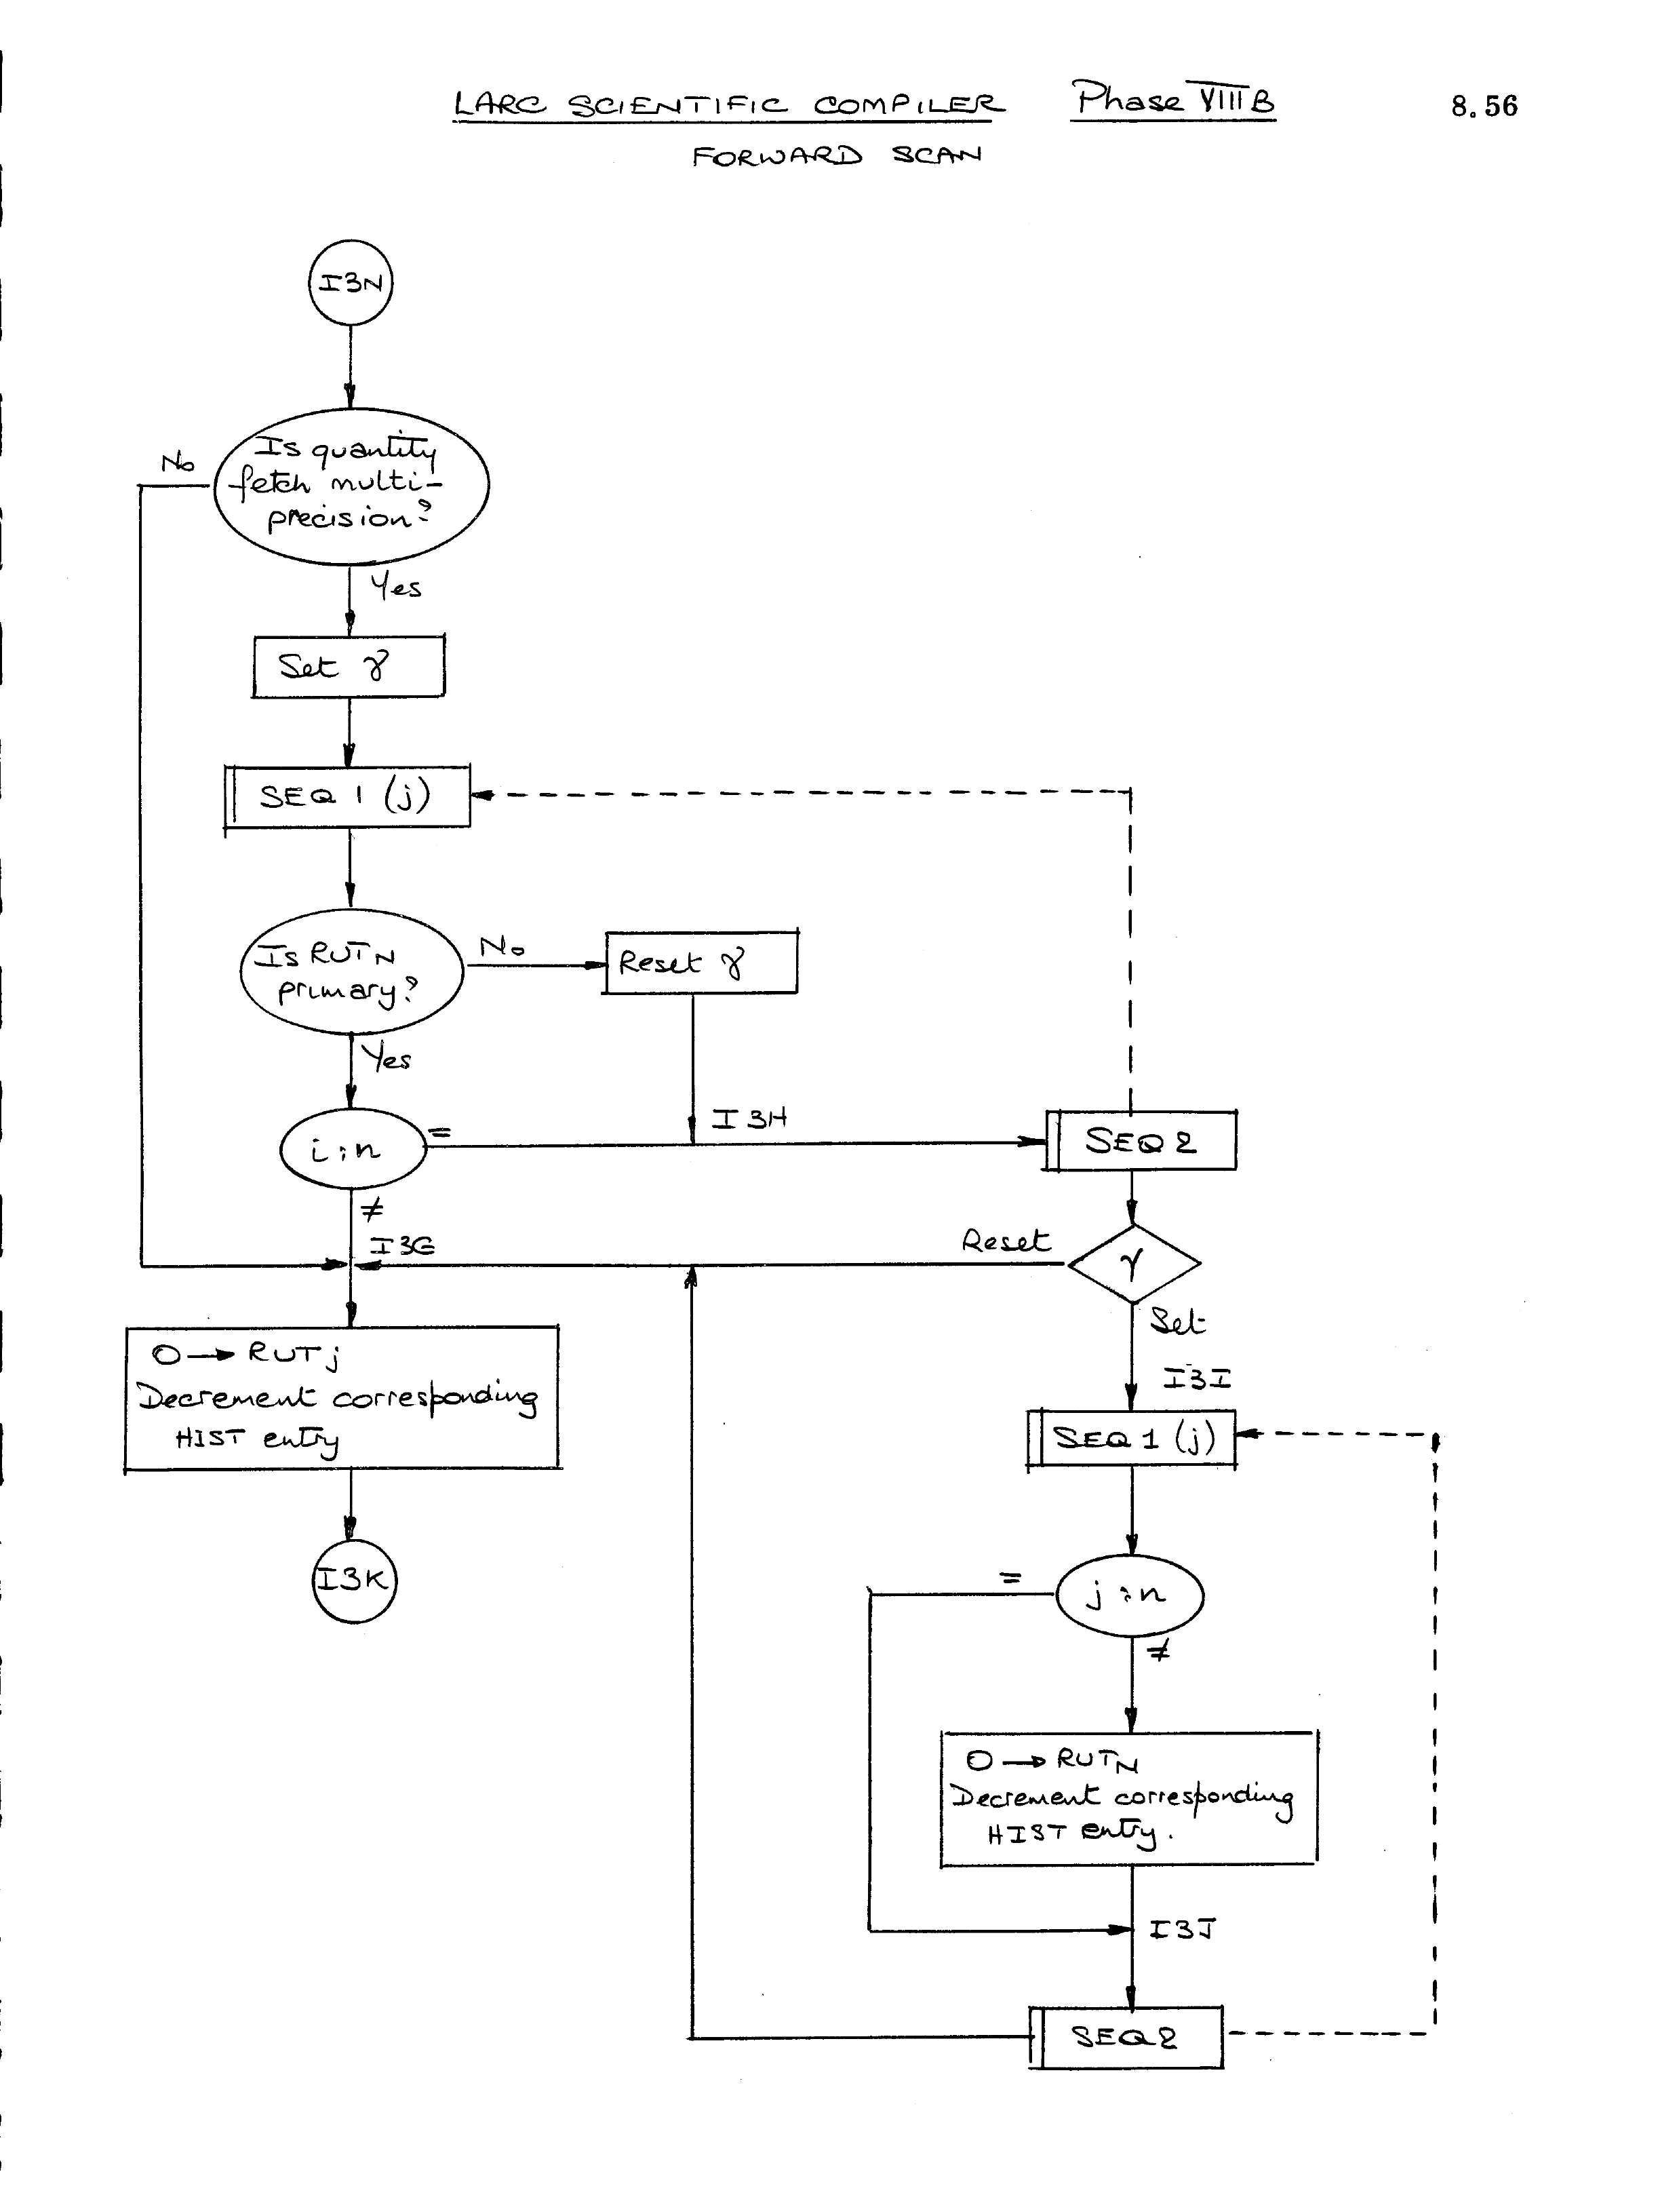 LARC SCIENTIFIC COMPILER Phase VIII B 8.56
FORWARD SCAN
I3N
Is quantity
fetch multi-
precision?
No
Yes
Set γ
SEQ 1 (j)
Is RUTN
primary?
No
Reset γ
Yes
i : n
=
I3H
SEQ 2
≠
I3G
Reset
γ
Set
0 → RUTj
Decrement corresponding
HIST entry
I3K
I3I
SEQ 1 (j)
j : n
=
≠
0 → RUTN
Decrement corresponding
HIST entry.
I3J
SEQ 2